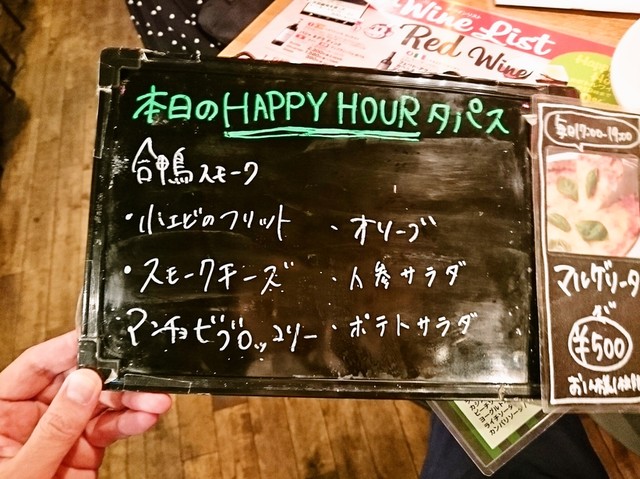 Wine List
Red Wine
本日のHAPPY HOURタパス
合鴨スモーク
・小エビのフリット ・オリーブ
・スモークチーズ ・人参サラダ
アンチョビブロッコリー ・ポテトサラダ
毎日17:00-19:00
マルゲリータ
が
¥500
ピーチ
ヨーグルト
ライチソーダ
カンパリソーダ